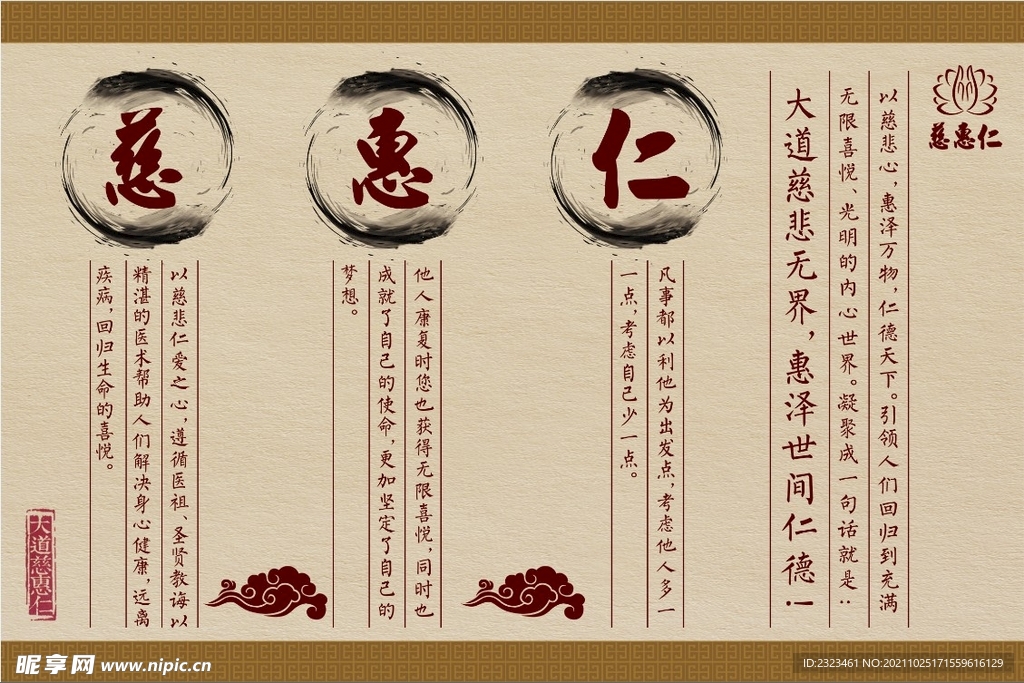 慈惠仁
以慈悲心，惠泽万物，仁德天下。引领人们回归到充满
无限喜悦、光明的内心世界。凝聚成一句话就是：
大道慈悲无界，惠泽世间仁德！
仁
凡事都以利他为出发点，考虑他人多一
一点，考虑自己少一点。
惠
他人康复时您也获得无限喜悦，同时也
成就了自己的使命，更加坚定了自己的
梦想。
慈
以慈悲仁爱之心，遵循医祖、圣贤教诲以
精湛的医术帮助人们解决身心健康，远离
疾病，回归生命的喜悦。
大道慈惠仁
昵享网 www.nipic.cn
ID:2323461 NO:20211025171559616129